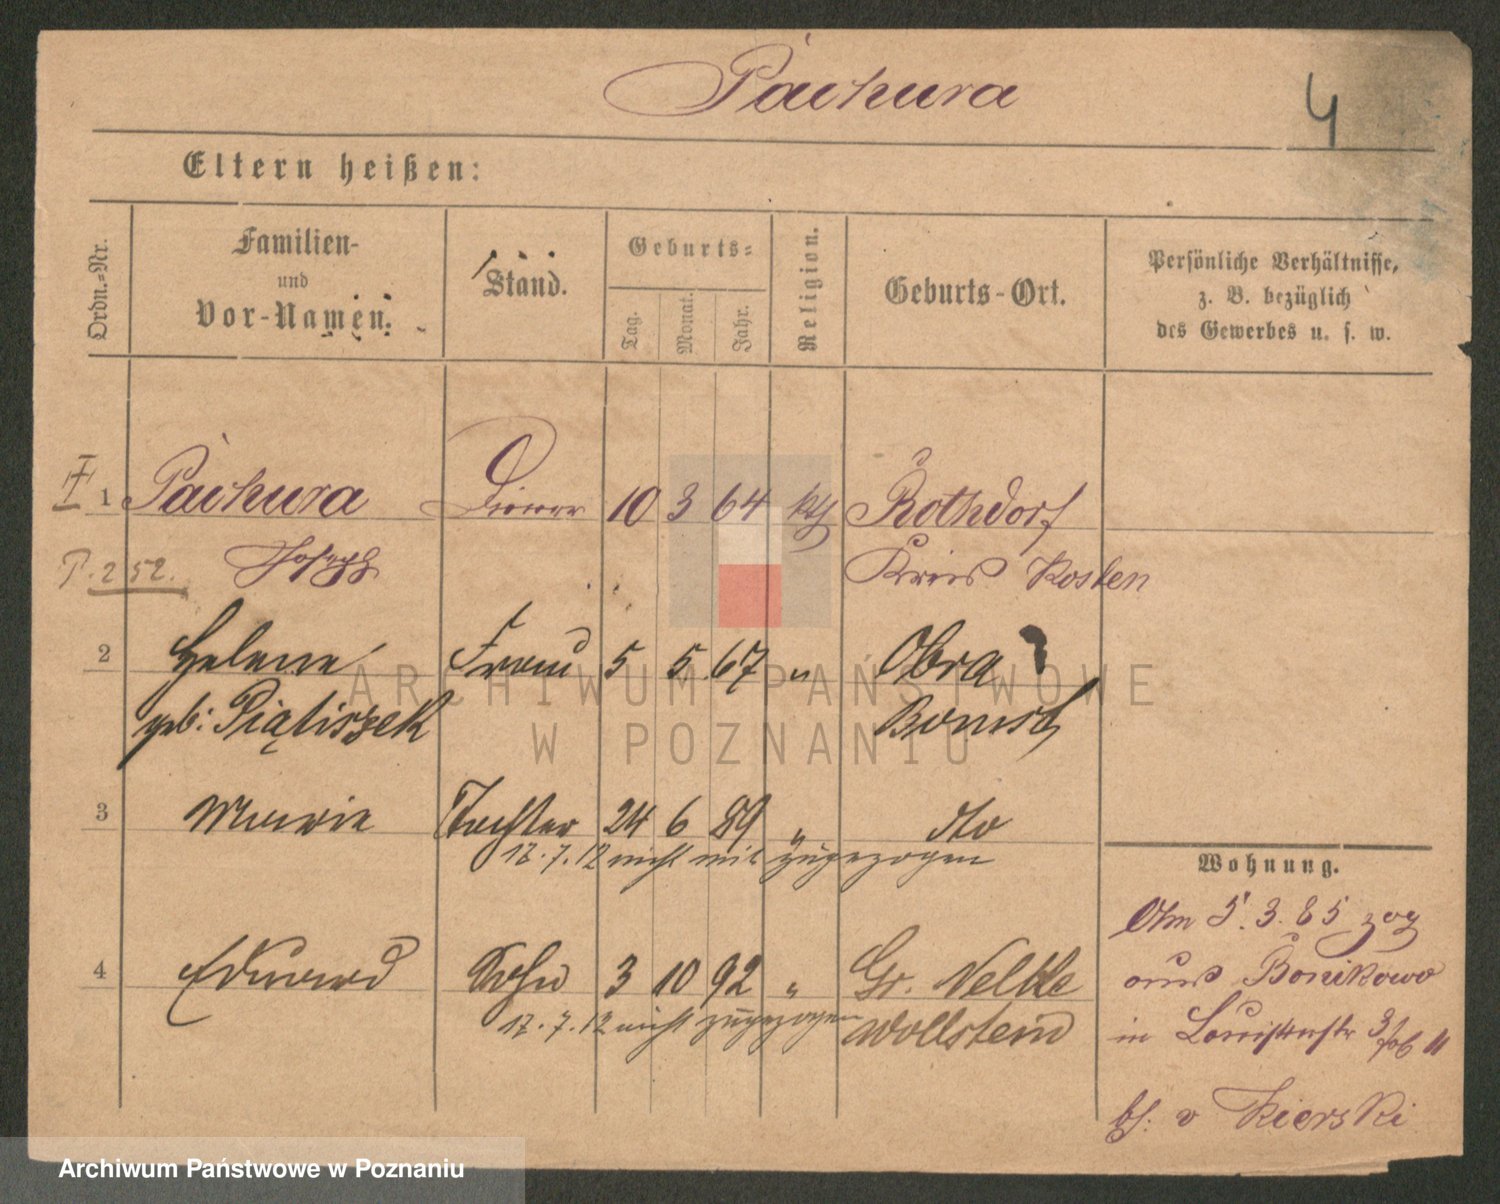 Pachura
4
Eltern heißen:
Ordn.-Nr.
Familien-
und
Vor-Namen.
Stand.
Geburts-
Tag. Monat. Jahr.
Religion.
Geburts-Ort.
Persönliche Verhältnisse,
z. B. bezüglich
des Gewerbes u. s. w.
1 Pachura Diener 10 3 64 kth Rothdorf
P. 252. Joseph Kreis Kosten
2 Helene Frau 5 5. 67 " Obra
geb: Piątiszek Bomst
3 Marie Tochter 24 6 89 " dto
12. 7. 12 nicht mit zugezogen
Wohnung.
4 Eduard Sohn 3 10 92 " Gr. Nelke
12. 7. 12 nicht zugezogen Wollstein
Am 5. 3. 85 zog
aus Bonikowo
in Louisenstr
bei v Kierski
ARCHIWUM PAŃSTWOWE
W POZNANIU
Archiwum Państwowe w Poznaniu